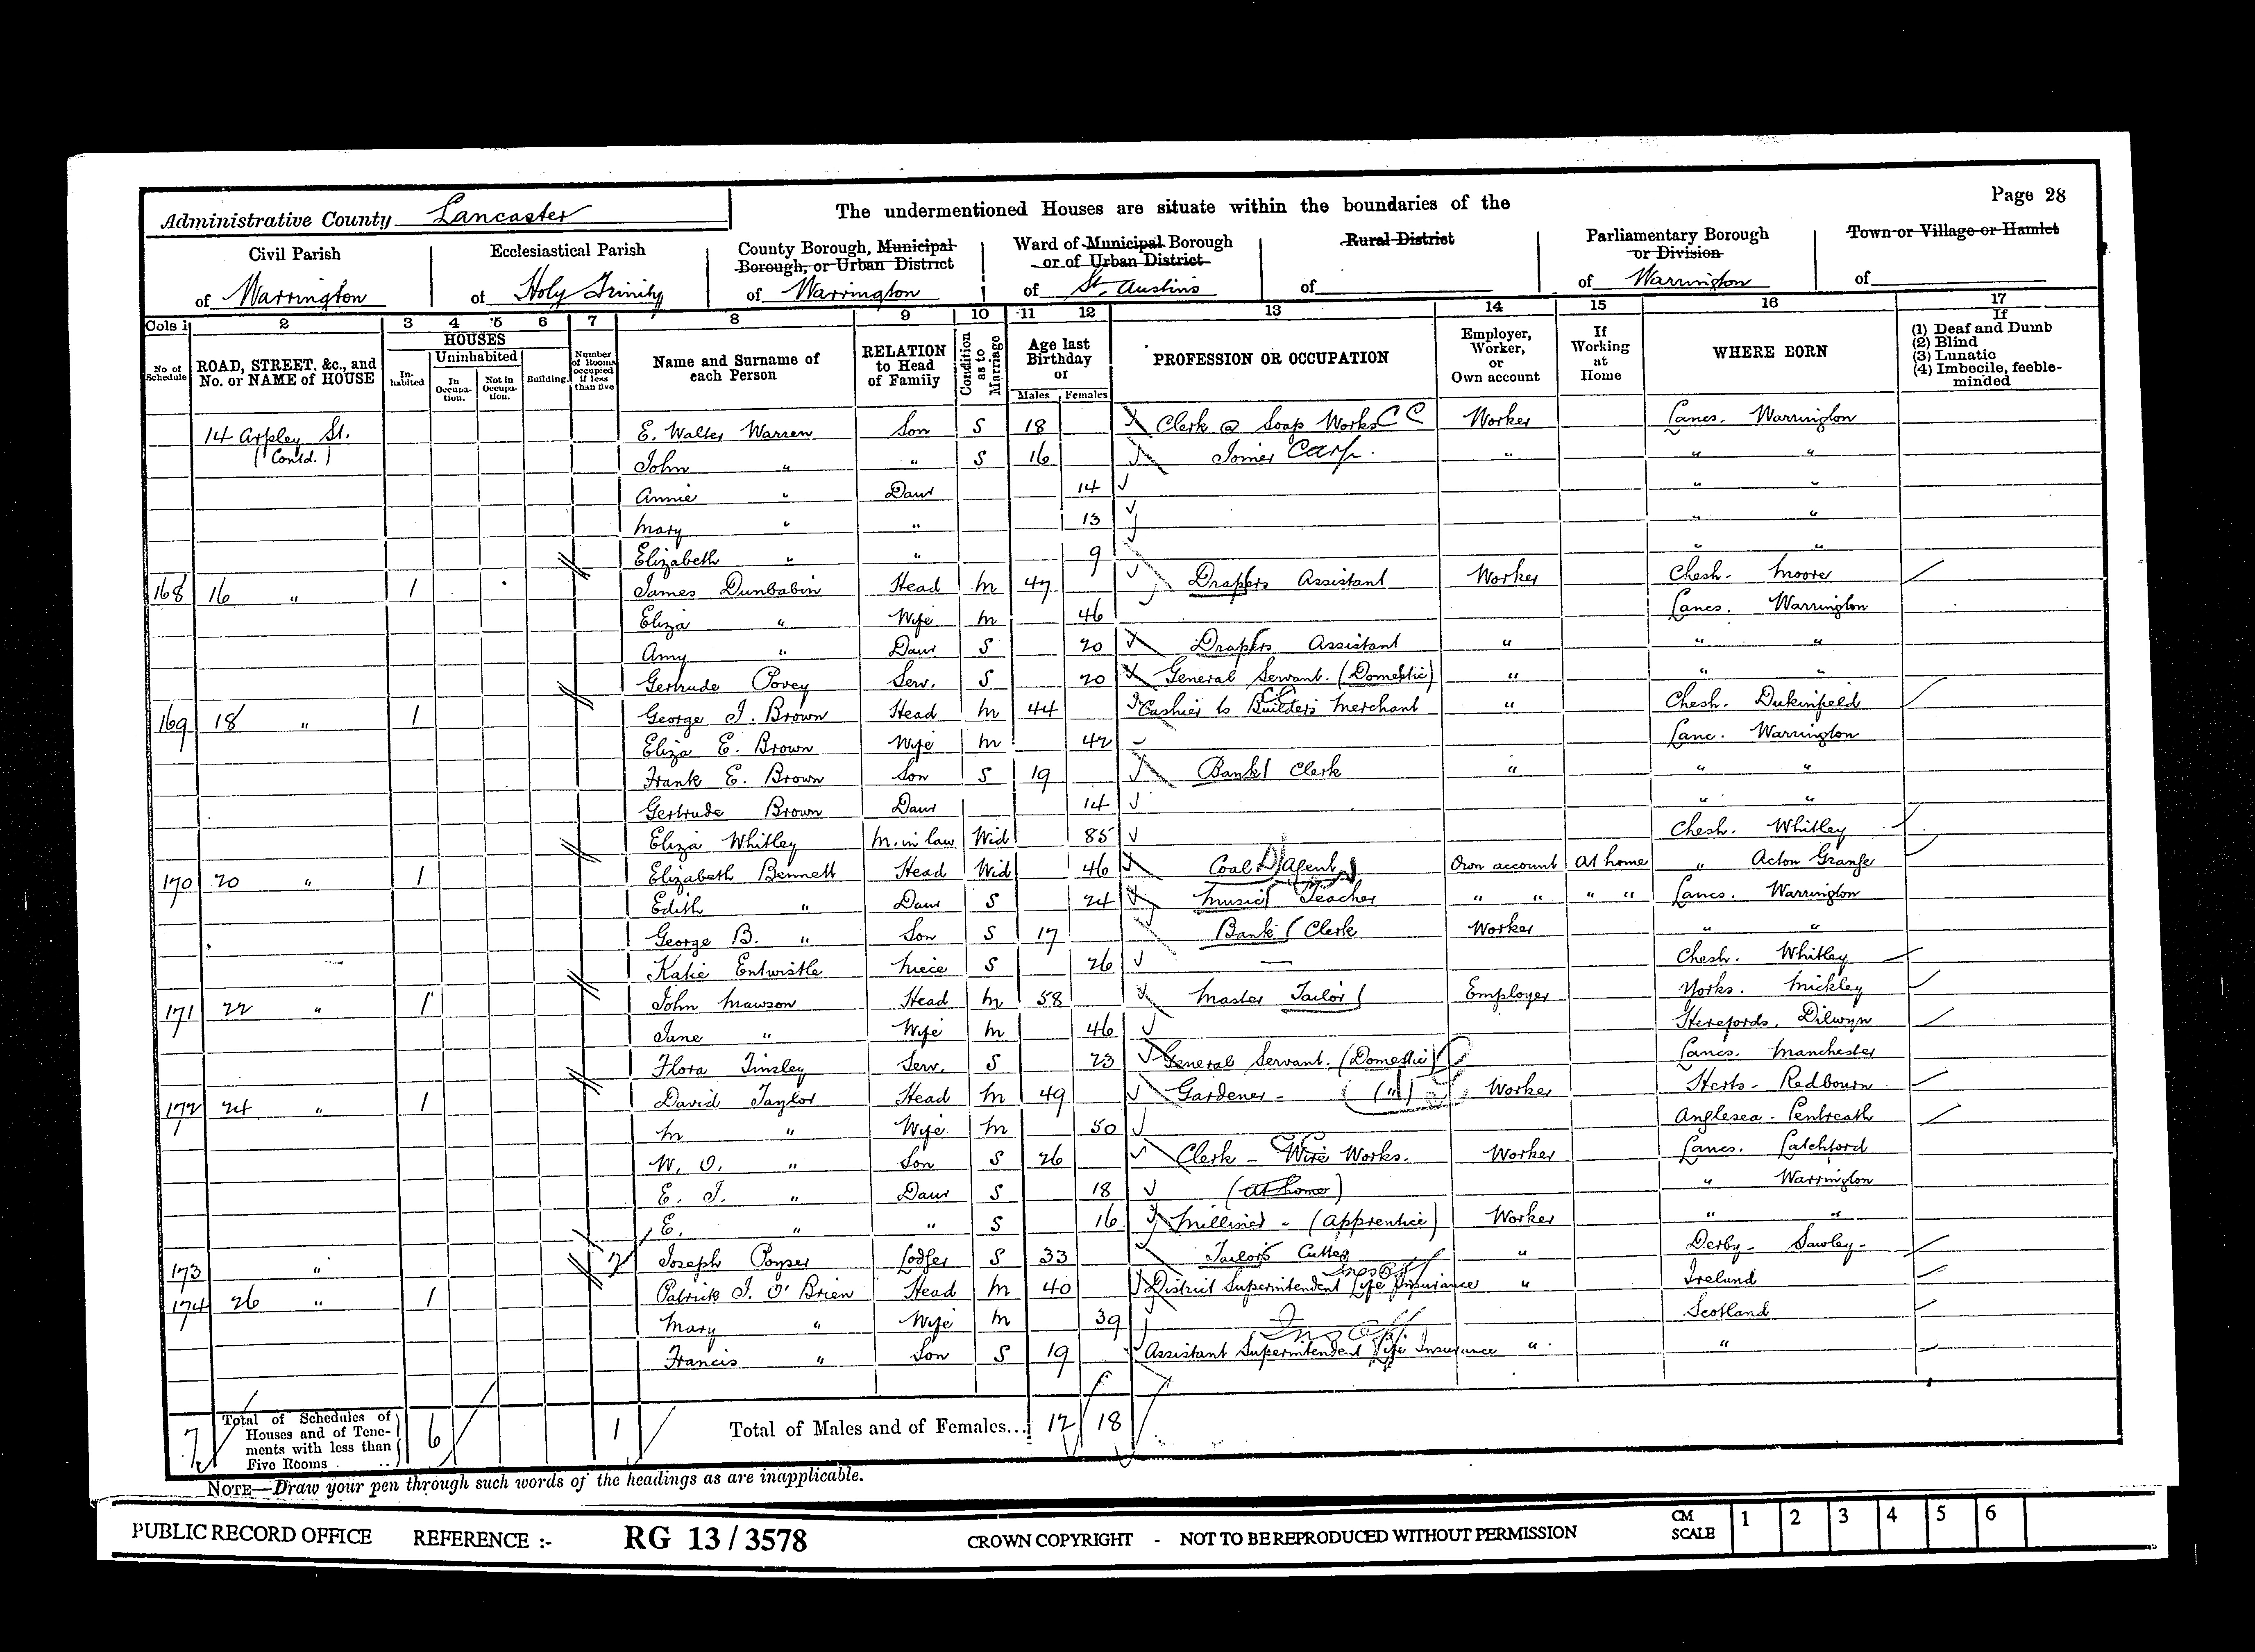 Administrative County Lancaster
The undermentioned Houses are situate within the boundaries of the
Page 28
Civil Parish of Warrington
Ecclesiastical Parish of Holy Trinity
County Borough, Municipal Borough, or Urban District of Warrington
Ward of Municipal Borough or of Urban District of St. Austins
Rural District of
Parliamentary Borough or Division of Warrington
Town or Village or Hamlet of
Cols 1 2 3 4 5 6 7 8 9 10 11 12 13 14 15 16 17
No. of Schedule
ROAD, STREET, &c., and No. or NAME of HOUSE
HOUSES
In-habited
Uninhabited
In Occupa-tion.
Not in Occupa-tion.
Building.
Number of Rooms occupied if less than five
Name and Surname of each Person
RELATION to Head of Family
Condition as to Marriage
Age last Birthday or
Males Females
PROFESSION OR OCCUPATION
Employer, Worker, or Own account
If Working at Home
WHERE BORN
If
(1) Deaf and Dumb
(2) Blind
(3) Lunatic
(4) Imbecile, feeble-minded
14 Arpley St. E. Walter Warren Son S 18 Clerk @ Soap Works CC Worker Lancs. Warrington
(Contd.) John " " S 16 Joiner Carp. " " "
Annie " Daur 14 " "
Mary " " 13 " "
Elizabeth " " 9 " "
168 16 " 1 James Dunbabin Head M 47 Drapers Assistant Worker Chesh. Moore
Eliza " Wife M 46 Lancs. Warrington
Amy " Daur S 20 Drapers Assistant " " "
Gertrude Povey Serv. S 20 General Servant. (Domestic) " " "
169 18 " 1 George J. Brown Head M 44 Cashier to Builders Merchant " Chesh. Dukinfield
Eliza E. Brown Wife M 42 Lanc. Warrington
Frank E. Brown Son S 19 Bank Clerk " " "
Gertrude Brown Daur 14 " "
Eliza Whitley M. in law Wid 85 Chesh. Whitley
170 20 " 1 Elizabeth Bennett Head Wid 46 Coal Agent Own account At home " Acton Grange
Edith " Daur S 24 Music Teacher " " " " Lancs. Warrington
George B. " Son S 17 Bank Clerk Worker " "
Katie Entwistle Niece S 26 — Chesh. Whitley
171 22 " 1 John Mawson Head M 58 Master Tailor Employer Yorks. Mickley
Jane " Wife M 46 Herefords. Dilwyn
Flora Tinsley Serv. S 23 General Servant. (Domestic) Lancs. Manchester
172 24 " 1 David Taylor Head M 49 Gardener - (") Worker Herts - Redbourn
M " Wife M 50 Anglesea - Pentreath
W. O. " Son S 26 Clerk - Wire Works. Worker Lancs. Latchford
E. J. " Daur S 18 (At home) " Warrington
E. " " S 16 Milliner - (Apprentice) Worker " "
173 " 2 Joseph Poyser Lodger S 33 Tailors Cutter " Derby - Sawley -
174 26 " 1 Patrick J. O'Brien Head M 40 District Superintendent Life Insurance " Ireland
Mary " Wife M 39 Scotland
Francis " Son S 19 Assistant Superintendent Life Insurance " "
7 Total of Schedules of Houses and of Tene-ments with less than Five Rooms .. 6 1 Total of Males and of Females... 12 18
NOTE—Draw your pen through such words of the headings as are inapplicable.
PUBLIC RECORD OFFICE REFERENCE :- RG 13 / 3578 CROWN COPYRIGHT - NOT TO BE REPRODUCED WITHOUT PERMISSION CM SCALE 1 2 3 4 5 6